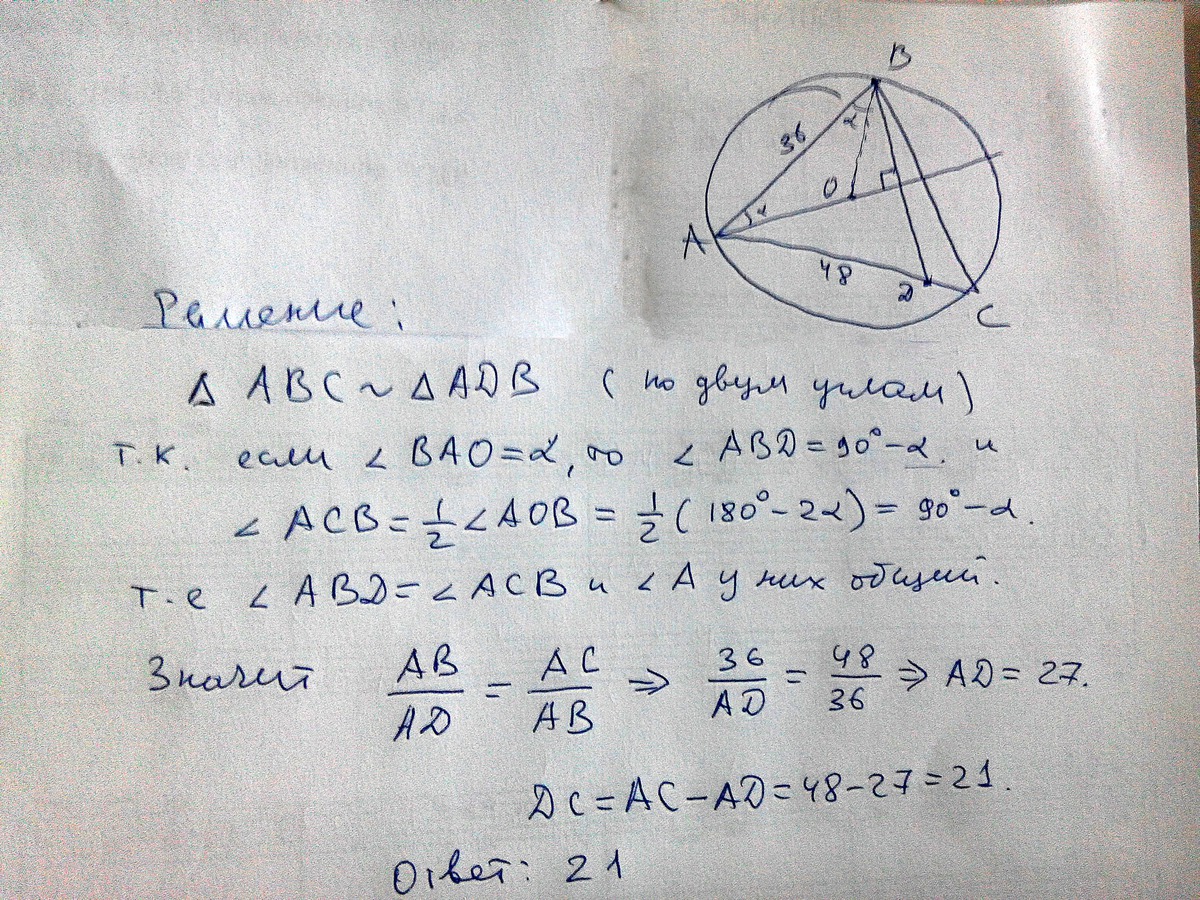 B
36
α
O
α
A
48
D
C
Решение:
Δ ABC ~ Δ ADB (по двум углам)
т.к. если ∠ BAO = α, то ∠ ABD = 90° - α и
∠ ACB = 1/2 ∠ AOB = 1/2 (180° - 2α) = 90° - α.
т.е ∠ ABD = ∠ ACB и ∠ A у них общий.
Значит AB/AD = AC/AB ⇒ 36/AD = 48/36 ⇒ AD = 27.
DC = AC - AD = 48 - 27 = 21.
Ответ: 21